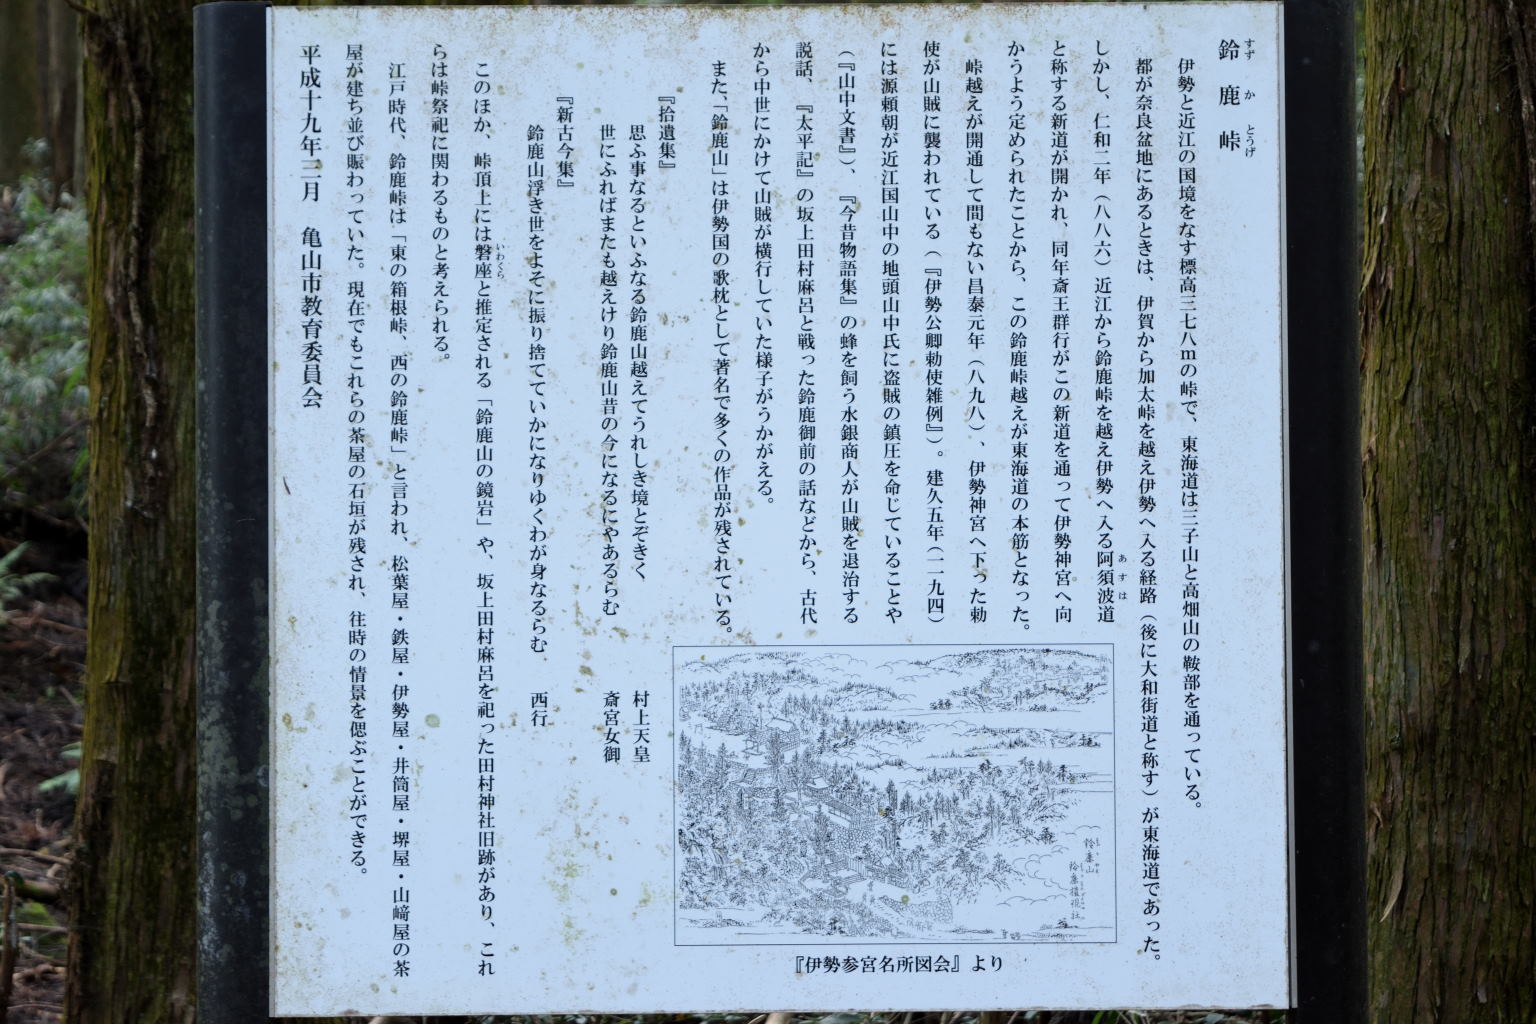 鈴鹿峠
すずかとうげ
伊勢と近江の国境をなす標高三七八mの峠で、東海道は三子山と高畑山の鞍部を通っている。
都が奈良盆地にあるときは、伊賀から加太峠を越え伊勢へ入る経路(後に大和街道と称す)が東海道であった。
しかし、仁和二年(八八六)近江から鈴鹿峠を越え伊勢へ入る阿須波道
あすは
と称する新道が開かれ、同年斎王群行がこの新道を通って伊勢神宮へ向
かうよう定められたことから、この鈴鹿峠越えが東海道の本筋となった。
峠越えが開通して間もない昌泰元年(八九八)、伊勢神宮へ下った勅
使が山賊に襲われている(『伊勢公卿勅使雑例』)。建久五年(一一九四)
には源頼朝が近江国山中の地頭山中氏に盗賊の鎮圧を命じていることや
(『山中文書』)、『今昔物語集』の蜂を飼う水銀商人が山賊を退治する
説話、『太平記』の坂上田村麻呂と戦った鈴鹿御前の話などから、古代
から中世にかけて山賊が横行していた様子がうかがえる。
また、「鈴鹿山」は伊勢国の歌枕として著名で多くの作品が残されている。
『拾遺集』
思ふ事なるといふなる鈴鹿山越えてうれしき境とぞきく 村上天皇
世にふればまたも越えけり鈴鹿山昔の今になるにやあるらむ 斎宮女御
『新古今集』
鈴鹿山浮き世をよそに振り捨てていかになりゆくわが身なるらむ 西行
このほか、峠頂上には磐座と推定される「鈴鹿山の鏡岩」や、坂上田村麻呂を祀った田村神社旧跡があり、これ
いわくら
らは峠祭祀に関わるものと考えられる。
江戸時代、鈴鹿峠は「東の箱根峠、西の鈴鹿峠」と言われ、松葉屋・鉄屋・伊勢屋・井筒屋・堺屋・山﨑屋の茶
屋が建ち並び賑わっていた。現在でもこれらの茶屋の石垣が残され、往時の情景を偲ぶことができる。
平成十九年三月 亀山市教育委員会
鈴鹿山
鈴鹿権現社
『伊勢参宮名所図会』より